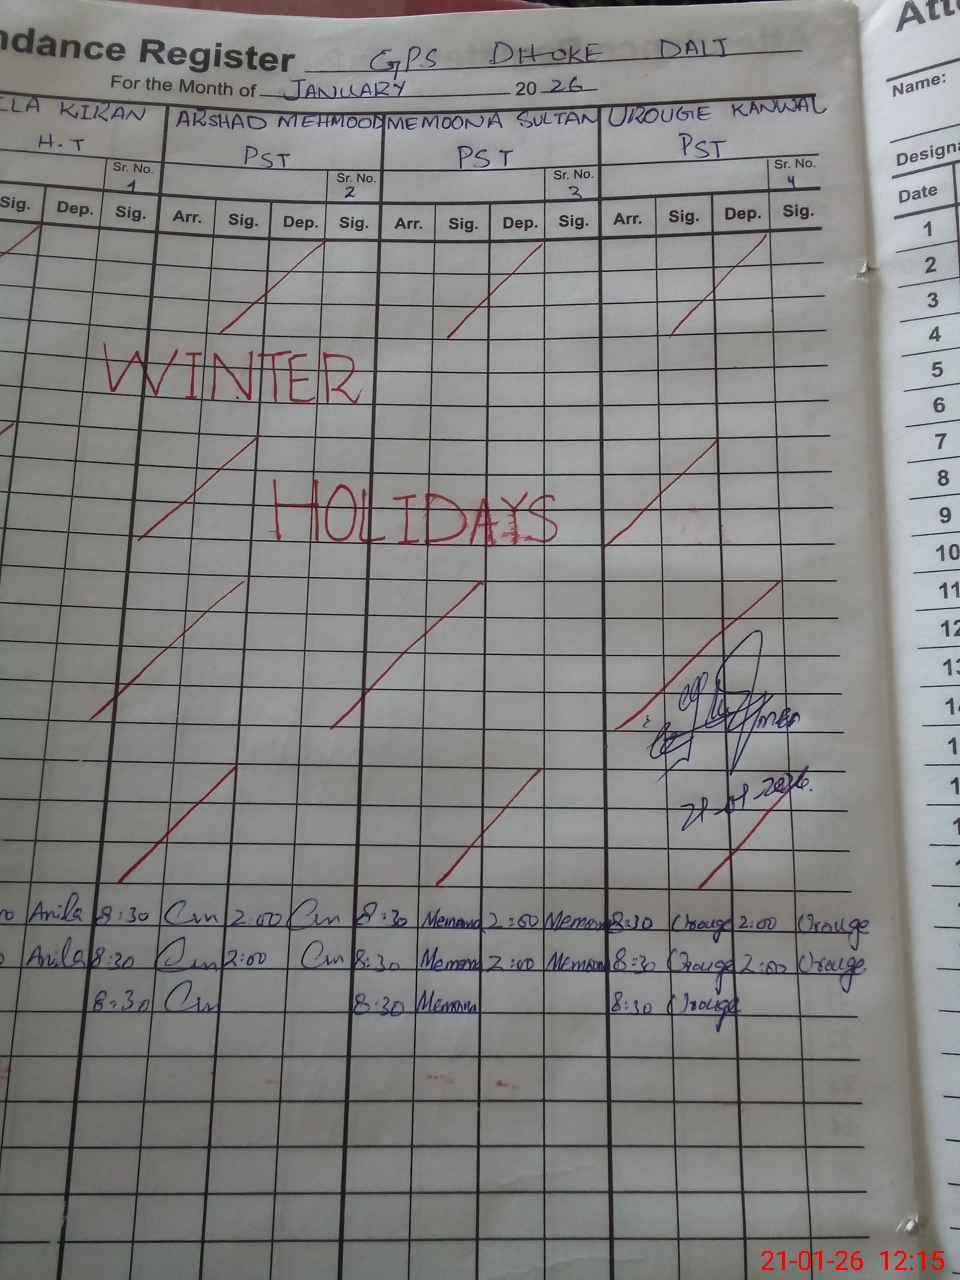 ndance Register GPS DHOKE DALI
For the Month of JANUARY 2026
ILA KIRAN ARSHAD MEHMOOD MEMOONA SULTAN UROUGE KANWAL
H.T PST PST PST
Sr. No. 1 Sr. No. 2 Sr. No. 3 Sr. No. 4
Sig. Dep. Sig. Arr. Sig. Dep. Sig. Arr. Sig. Dep. Sig. Arr. Sig. Dep. Sig.
WINTER
HOLIDAYS
21-01-2026.
Anila 8:30 2:00 8:30 Memona 2:00 Memona 8:30 Orouge 2:00 Orouge
Anila 8:30 2:00 8:30 Memona 2:00 Memona 8:30 Orouge 2:00 Orouge
8:30 8:30 Memona 8:30 Orouge
Atte
Name:
Designa
Date
1
2
3
4
5
6
7
8
9
10
11
12
21-01-26 12:15